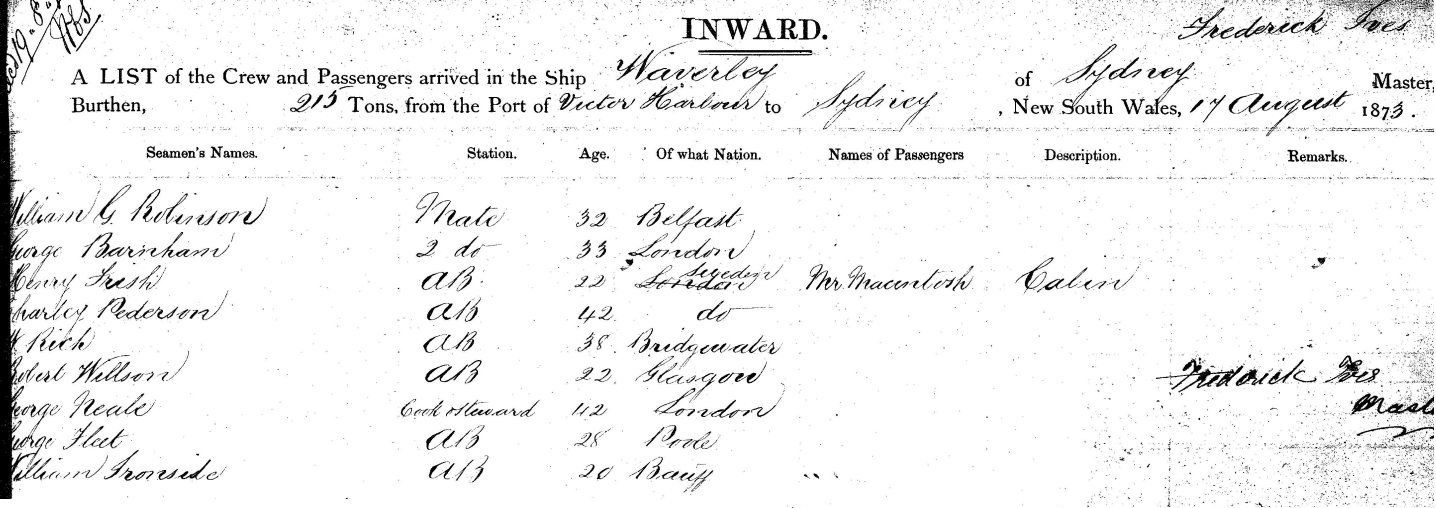 INWARD.
Frederick Ives
A LIST of the Crew and Passengers arrived in the Ship Waverley of Sydney Master,
Burthen, 215 Tons, from the Port of Victor Harbour to Sydney, New South Wales, 17 August 1873.
Seamen's Names. Station. Age. Of what Nation. Names of Passengers Description. Remarks.
William G. Robinson Mate 32 Belfast
George Barnham 2 do 33 London
Henry Frish AB 22 London Sweden Mr. Macintosh Cabin
Charley Pederson AB 42 do
W Rich AB 38 Bridgewater
Robert Willson AB 22 Glasgow Frederick Ives
George Neale Cook & steward 42 London Master
George Fleet AB 28 Poole
William Ironside AB 20 Banff